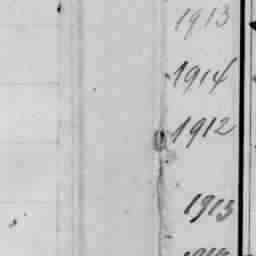 1913
1914
1912
1913